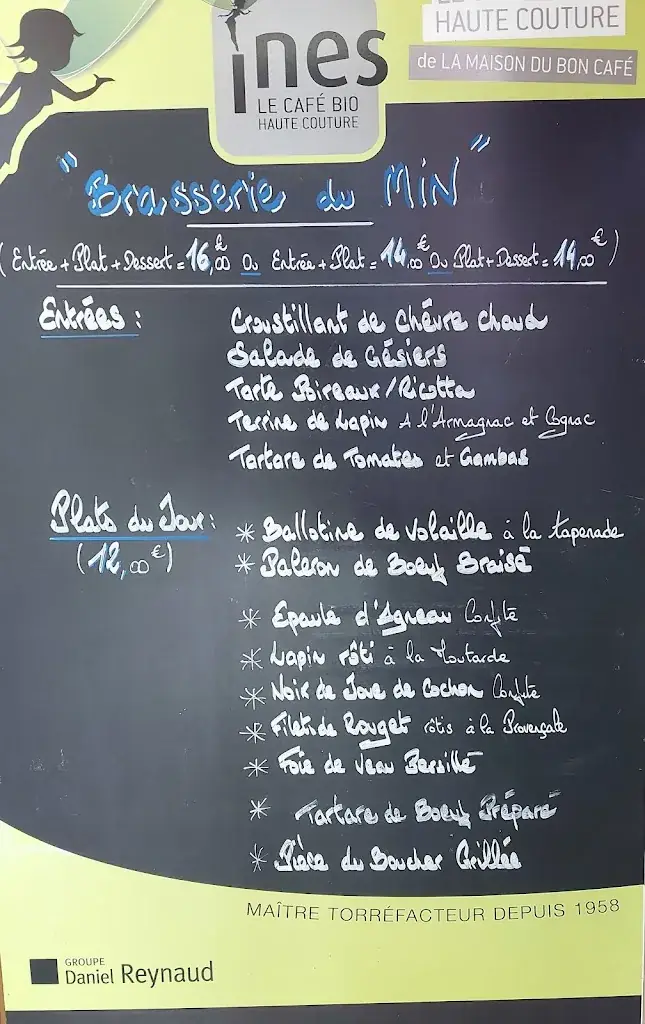 HAUTE COUTURE
de LA MAISON DU BON CAFÉ
ines
LE CAFÉ BIO
HAUTE COUTURE
"Brasserie du MiN"
(Entrée + Plat + Dessert = 16,00€ Ou Entrée + Plat = 14,00€ Ou Plat + Dessert = 14,00€)
Entrées :
Croustillant de Chèvre chaud
Salade de Gésiers
Tarte Poireaux/Ricotta
Terrine de Lapin A l'Armagnac et Cognac
Tartare de Tomates et Gambas
Plats du Jour :
(12,00€)
* Ballotine de volaille à la tapenade
* Paleron de Boeuf Braisé
* Epaule d'Agneau Confite
* Lapin rôti à la Moutarde
* Noix de Joue de Cochon Confite
* Filets de Rouget rôtis à la Provençale
* Foie de Veau Persillé
* Tartare de Boeuf Préparé
* Pièce du Boucher Grillée
MAÎTRE TORRÉFACTEUR DEPUIS 1958
GROUPE
Daniel Reynaud